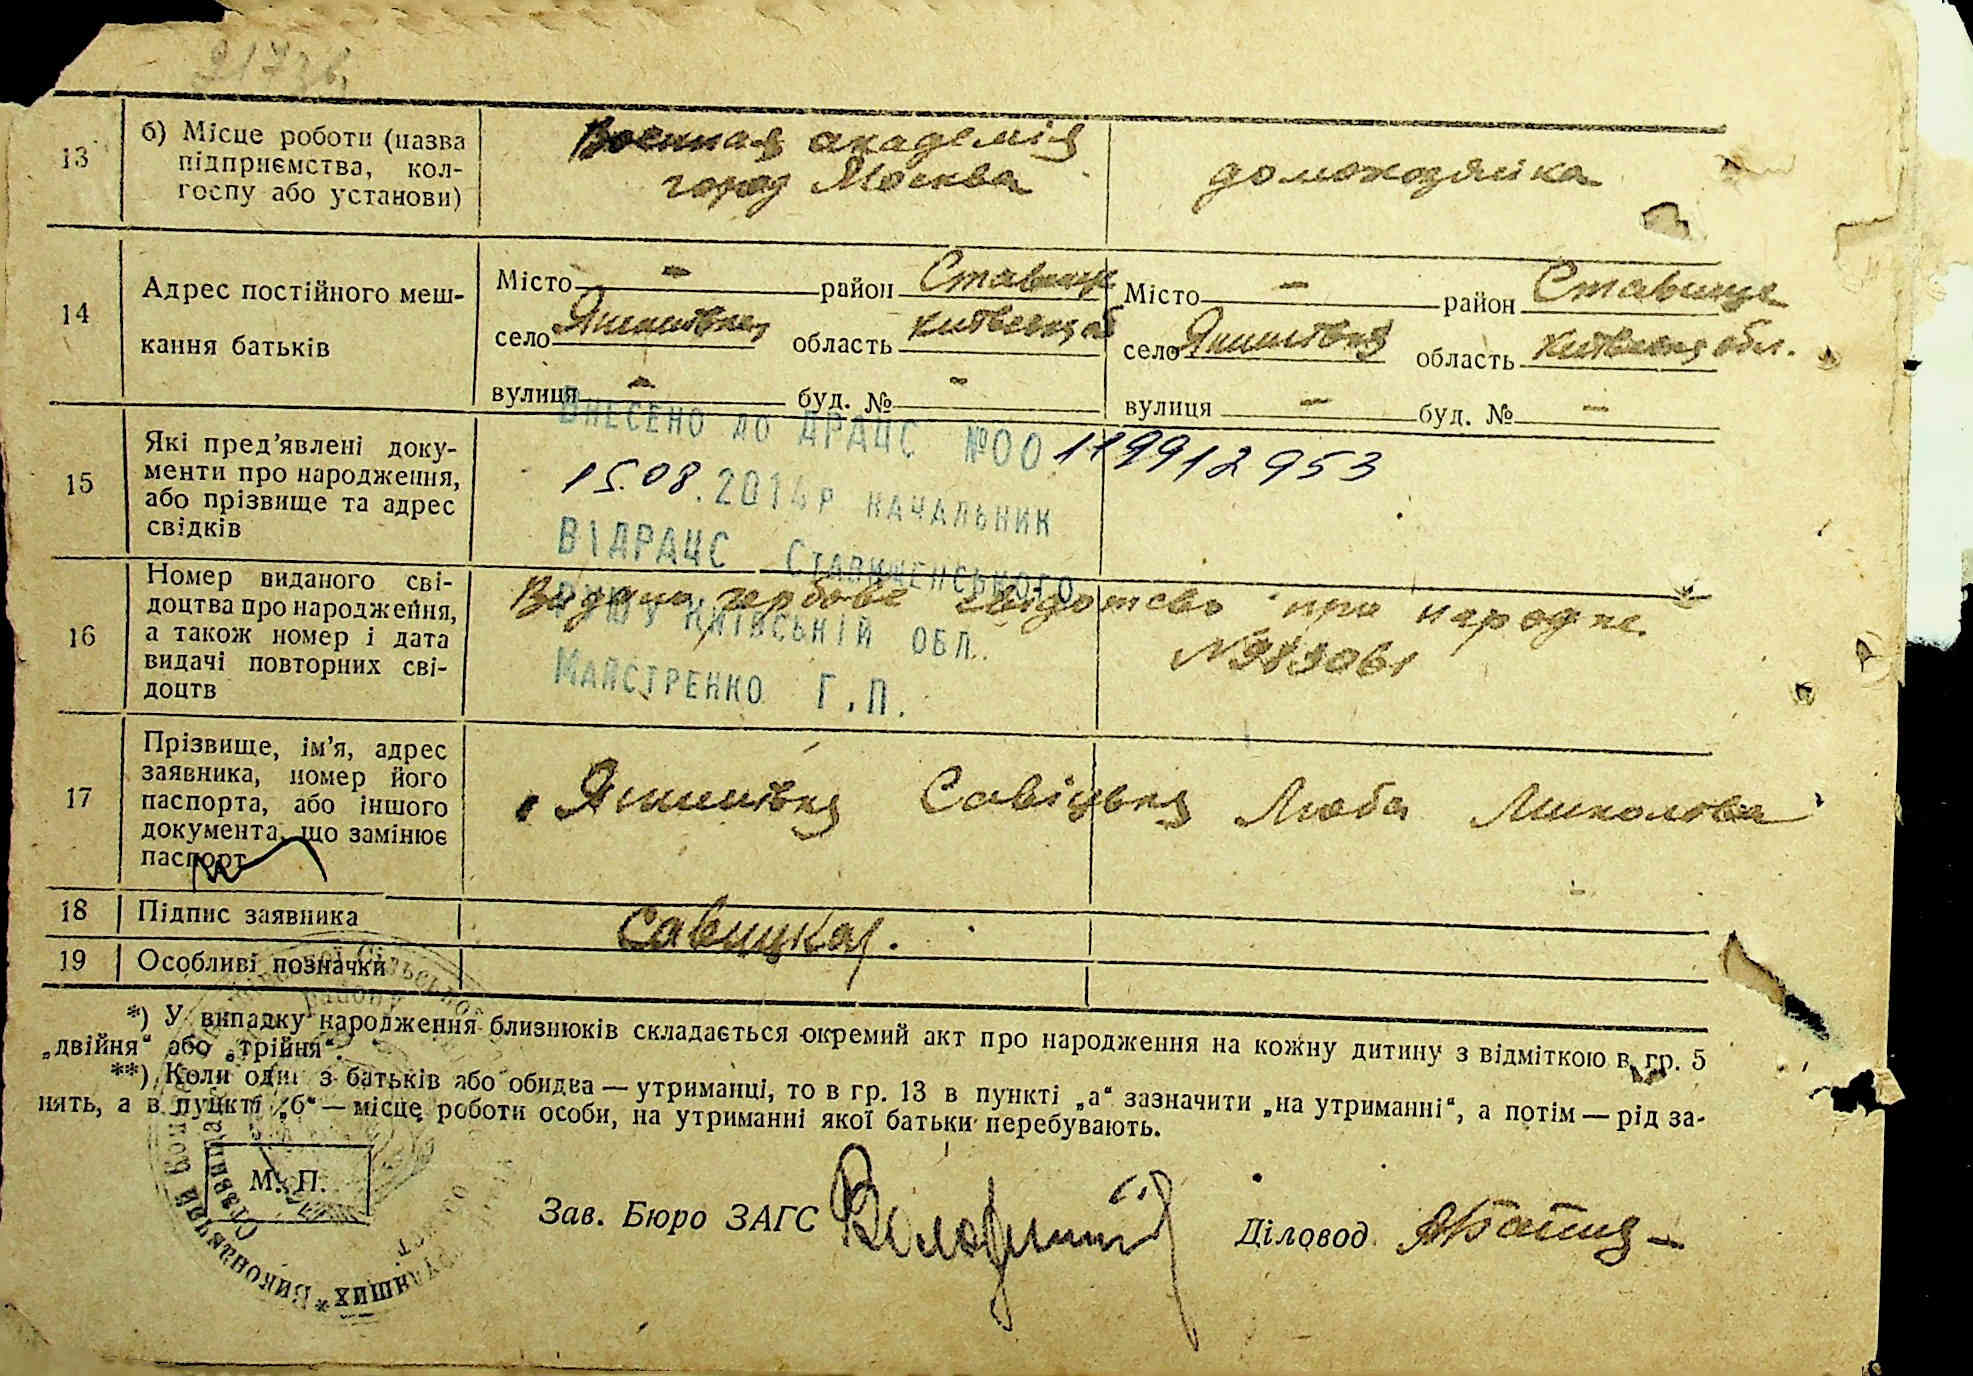 217 зв.
13
б) Місце роботи (назва
підприємства, кол-
госпу або установи)
Военная академія
город Москва
домохозяйка
14
Адрес постійного меш-
кання батьків
Місто - район Ставище
село Янишівка область київська об
вулиця - буд. № -
Місто - район Ставище
село Янишівка область київська обл.
вулиця - буд. № -
15
Які пред’явлені доку-
менти про народження,
або прізвище та адрес
свідків
ВНЕСЕНО ДО ДРАЦС №00 119912953
15.08.2014р НАЧАЛЬНИК
ВІДРАЦС СТАВИЩЕНСЬКОГО
РУЮ У КИЇВСЬКІЙ ОБЛ.
МАЙСТРЕНКО Г.П.
16
Номер виданого сві-
доцтва про народження,
а також номер і дата
видачі повторних сві-
доцтв
Видано гербове свідотсво про народже.
17
Прізвище, ім’я, адрес
заявника, номер його
паспорта, або іншого
документа, що замінює
паспорт
Янишівка Савіцька Люба Миколова
18
Підпис заявника
Савицкая.
19
Особливі позначки
*) У випадку народження близнюків складається окремий акт про народження на кожну дитину з відміткою в гр. 5
„двійня“ або „трійня“.
**) Коли один з батьків або обидва — утриманці, то в гр. 13 в пункті „а“ зазначити „на утриманні“, а потім — рід за-
нять, а в пункті „б“ — місце роботи особи, на утриманні якої батьки перебувають.
М. П.
Зав. Бюро ЗАГС
Діловод